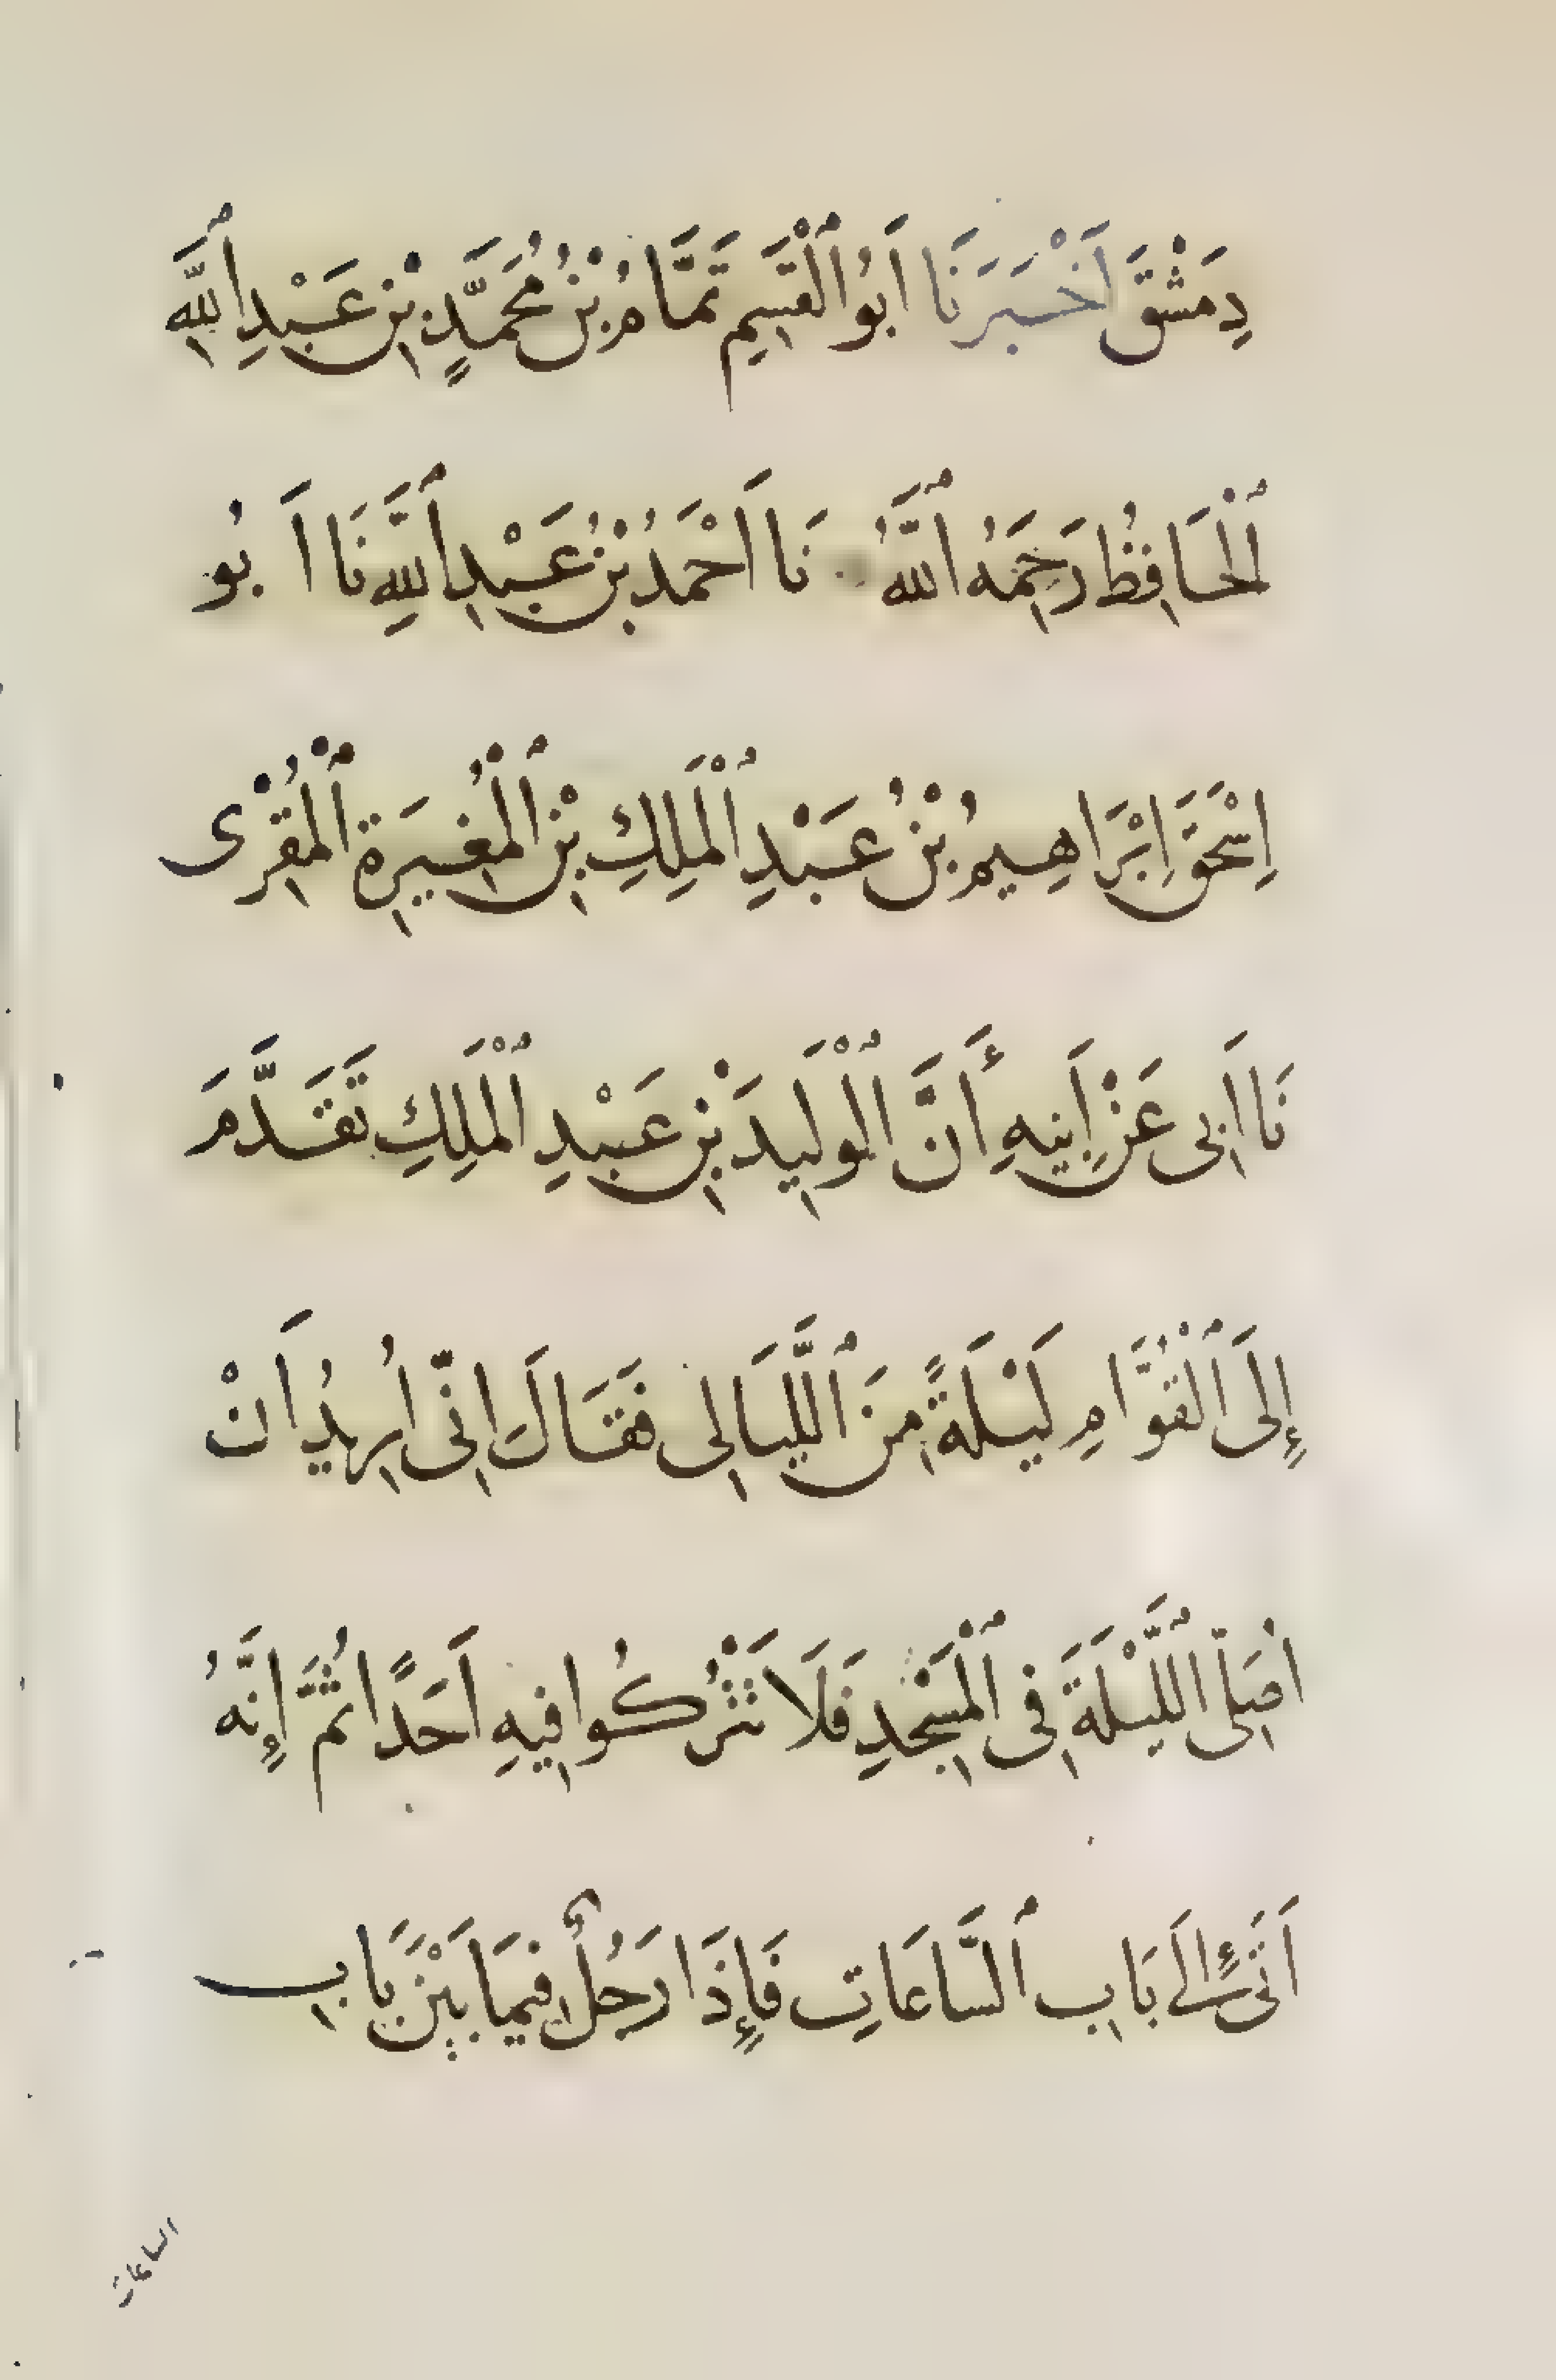 دِمَشْقَ اَخْبَرَنَا اَبُو ٱلْقٰسِمِ تَمَّامُ بْنُ مُحَمَّدٍ بْنِ عَبْدِ ٱللَّهِ
ٱلْحَافِظُ رَحِمَهُ ٱللَّهُ نَا اَحْمَدُ بْنُ عَبْدِ ٱللَّهِ نَا اَبُو
اِسْحَقَ اِبْرَاهِيمُ بْنُ عَبْدِ ٱلْمَلِكِ بْنِ ٱلْمُغِيرَةِ ٱلْمُقْرِى
نَا اَبِى عَنْ اَبِيهِ أَنَّ ٱلْوَلِيدَ بْنِ عَبْدِ ٱلْمَلِكِ تَقَدَّمَ
إِلَى ٱلْقُوَّامِ لَيْلَةً مِنَ ٱللَّيَالِى فَقَالَ اِنِّى اُرِيدُ اَنْ
اُصَلِّىَ ٱللَّيْلَةَ فِى ٱلْمَسْجِدِ فَلَا تَتْرُكُوا فِيهِ اَحَدًا ثُمَّ إِنَّهُ
اَتَى إِلَى بَابِ ٱلسَّاعَاتِ فَإِذَا رَجُلٌ فِيمَا بَيْنَ بَابِ
الساعات